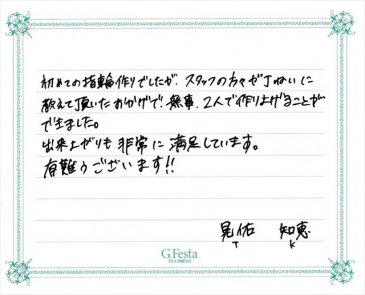 初めての指輪作りでしたが、スタッフの方々が丁ねいに
教えて頂いたおかげで、無事、2人で作り上げることが
できました。
出来上がりも非常に満足しています。
有難うございます!!
晃佑 知恵
T K
G.Festa
DIAMOND